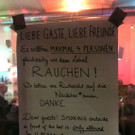 LIEBE GÄSTE, LIEBE FREUNDE
MAXIMAL 4 PERSONEN
gleichzeitig vor dem Lokal
RAUCHEN!
Wir bitten um Rücksicht auf die
Nachbar*innen
DANKE
Dear guests! SMOKING outside
in front of the bar is only allowed